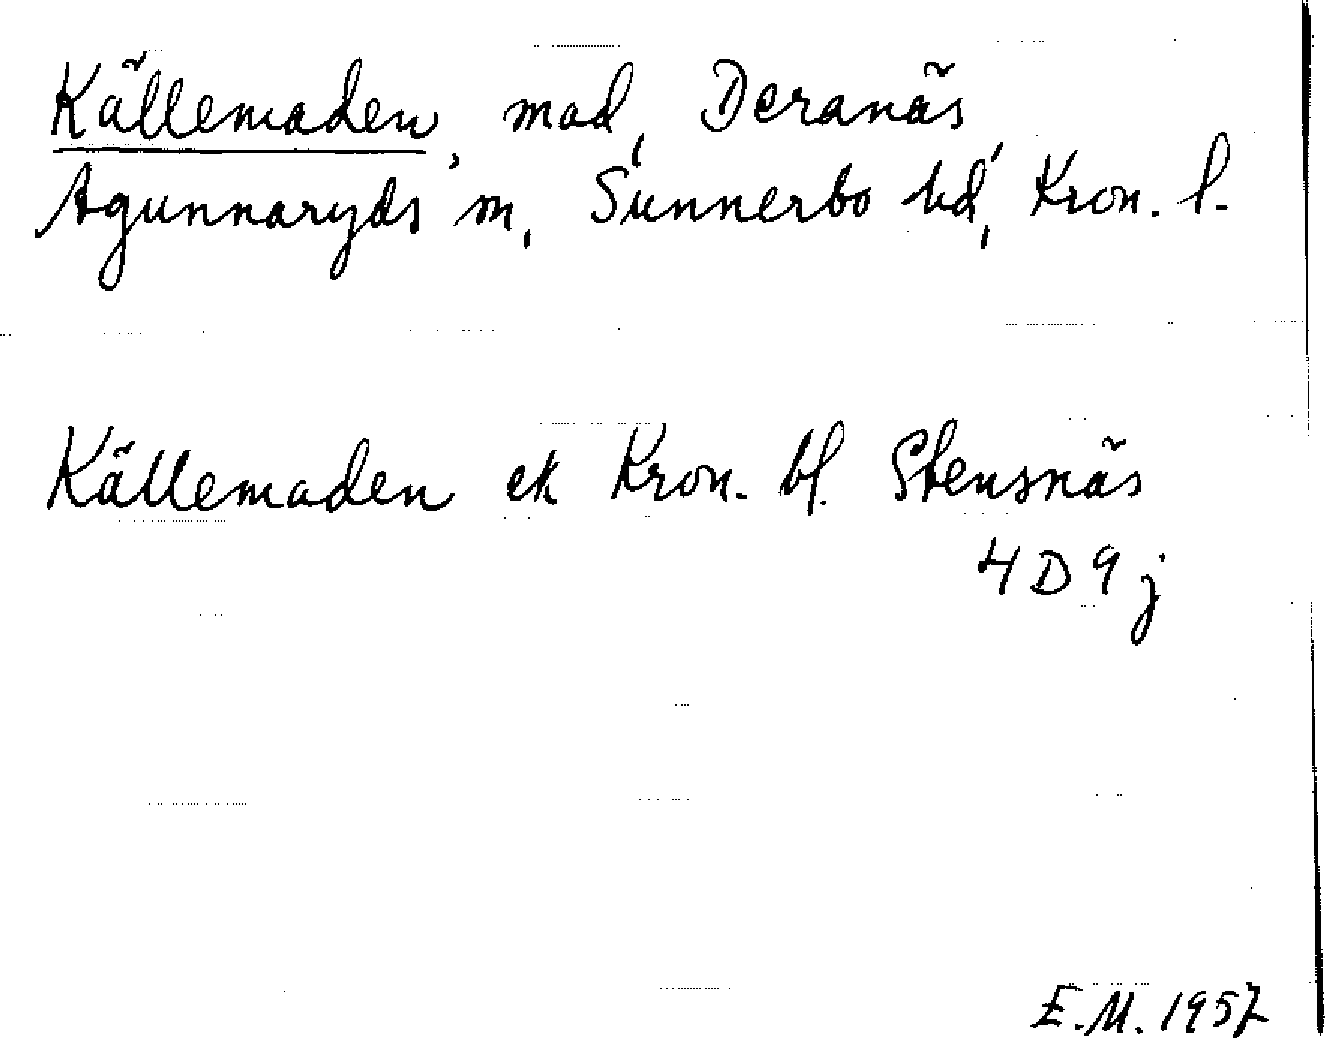 Källemaden, mad, Deranäs,
Agunnaryds sn, Sunnerbo hd, Kron. l.
Källemaden ek Kron. bl. Stensnäs
4 D 9 j
E.M. 1957